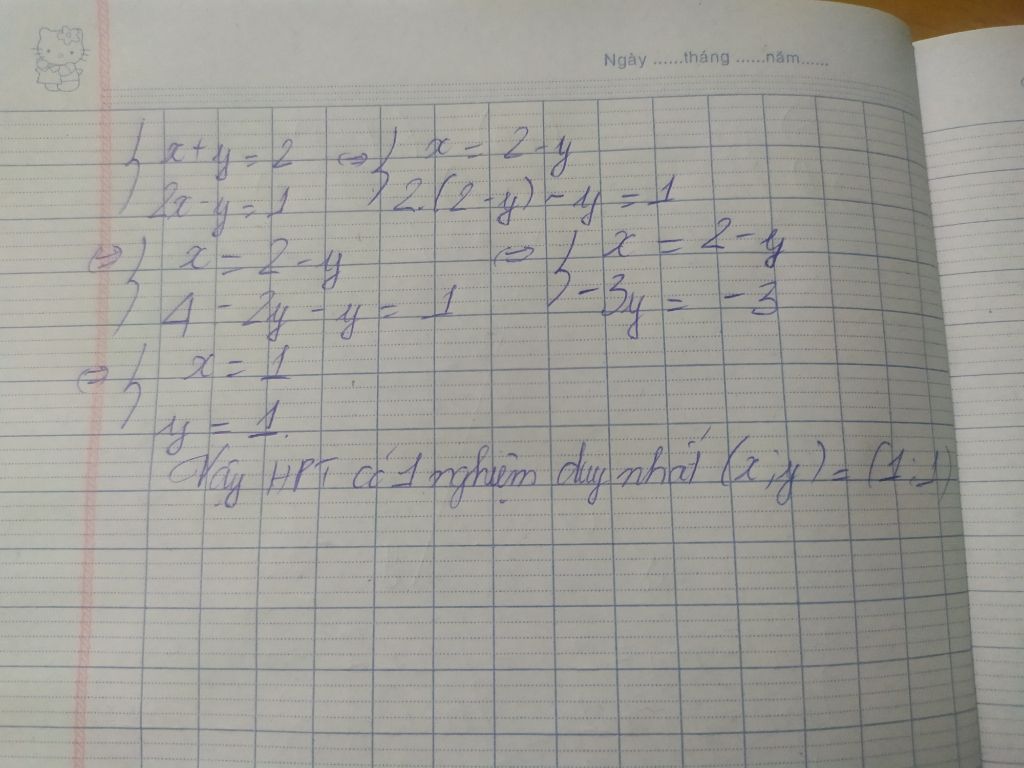 Ngày ......tháng ......năm......
{ x + y = 2 ⇔ { x = 2 - y
2x - y = 1 2.(2 - y) - y = 1
⇔ { x = 2 - y ⇔ { x = 2 - y
4 - 2y - y = 1 - 3y = - 3
⇔ { x = 1
y = 1.
Vậy HPT có 1 nghiệm duy nhất (x;y) = (1;1)